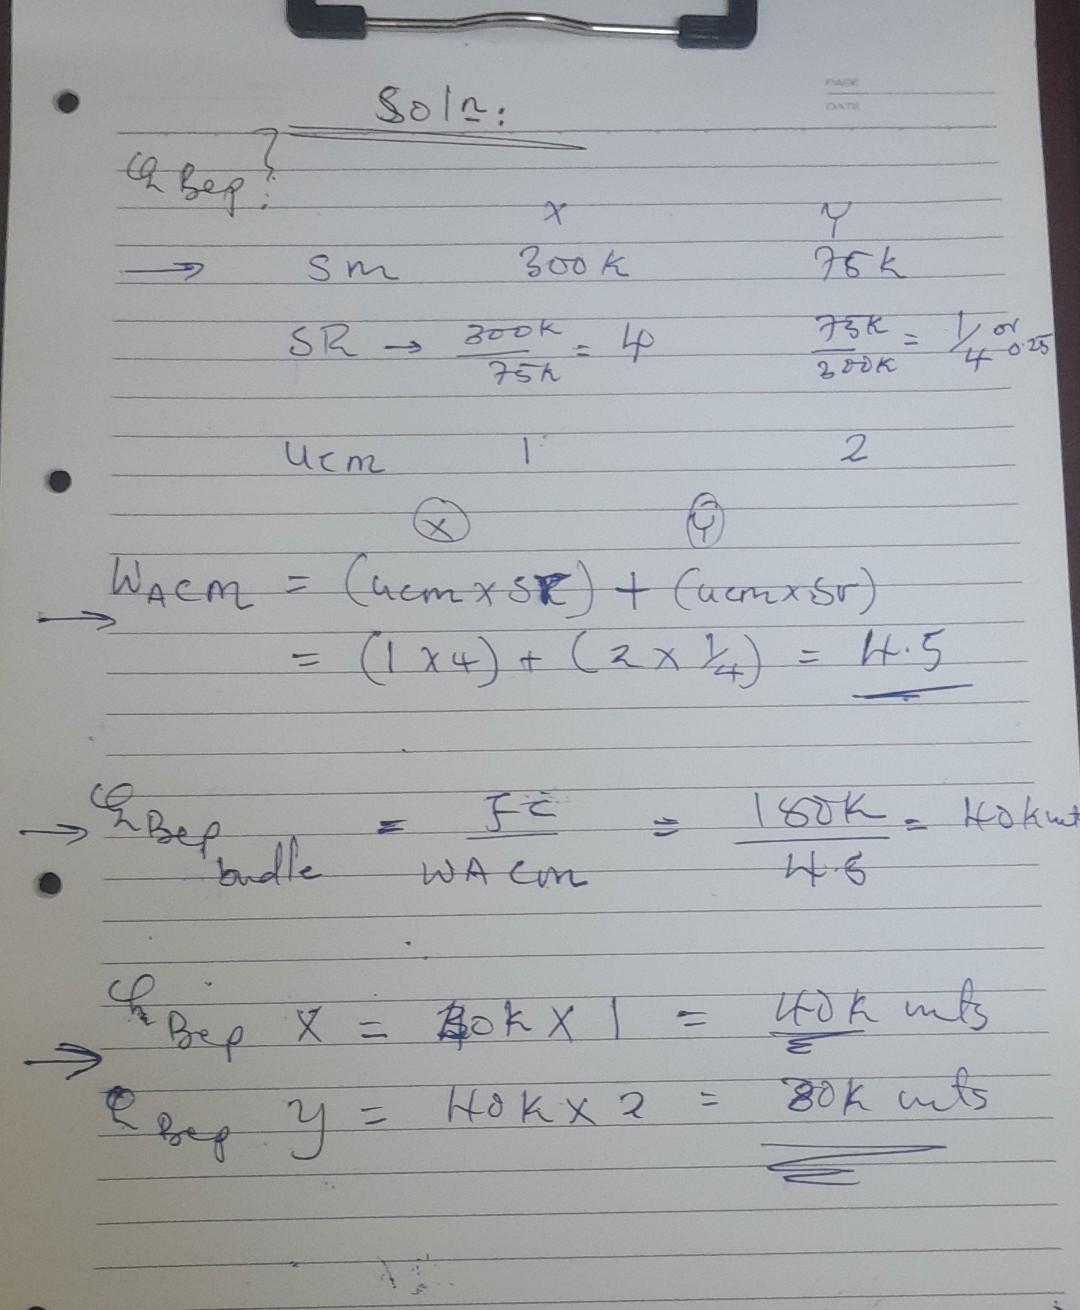 PAGE
DATE
Soln:
Q Bep?
X Y
→ Sm 300k 75k
SR → 300k/75k = 4 75k/300k = 1/4 or 0.25
Ucm 1 2
X Y
WACM = (ucm x Sr) + (ucm x Sr)
→
= (1 x 4) + (2 x 1/4) = 4.5
→ Q Bep bundle = FC/WA cm = 180k/4.5 = 40k unt
Q Bep X = 40k x 1 = 40k unts
→
Q Bep y = 40k x 2 = 80k unts